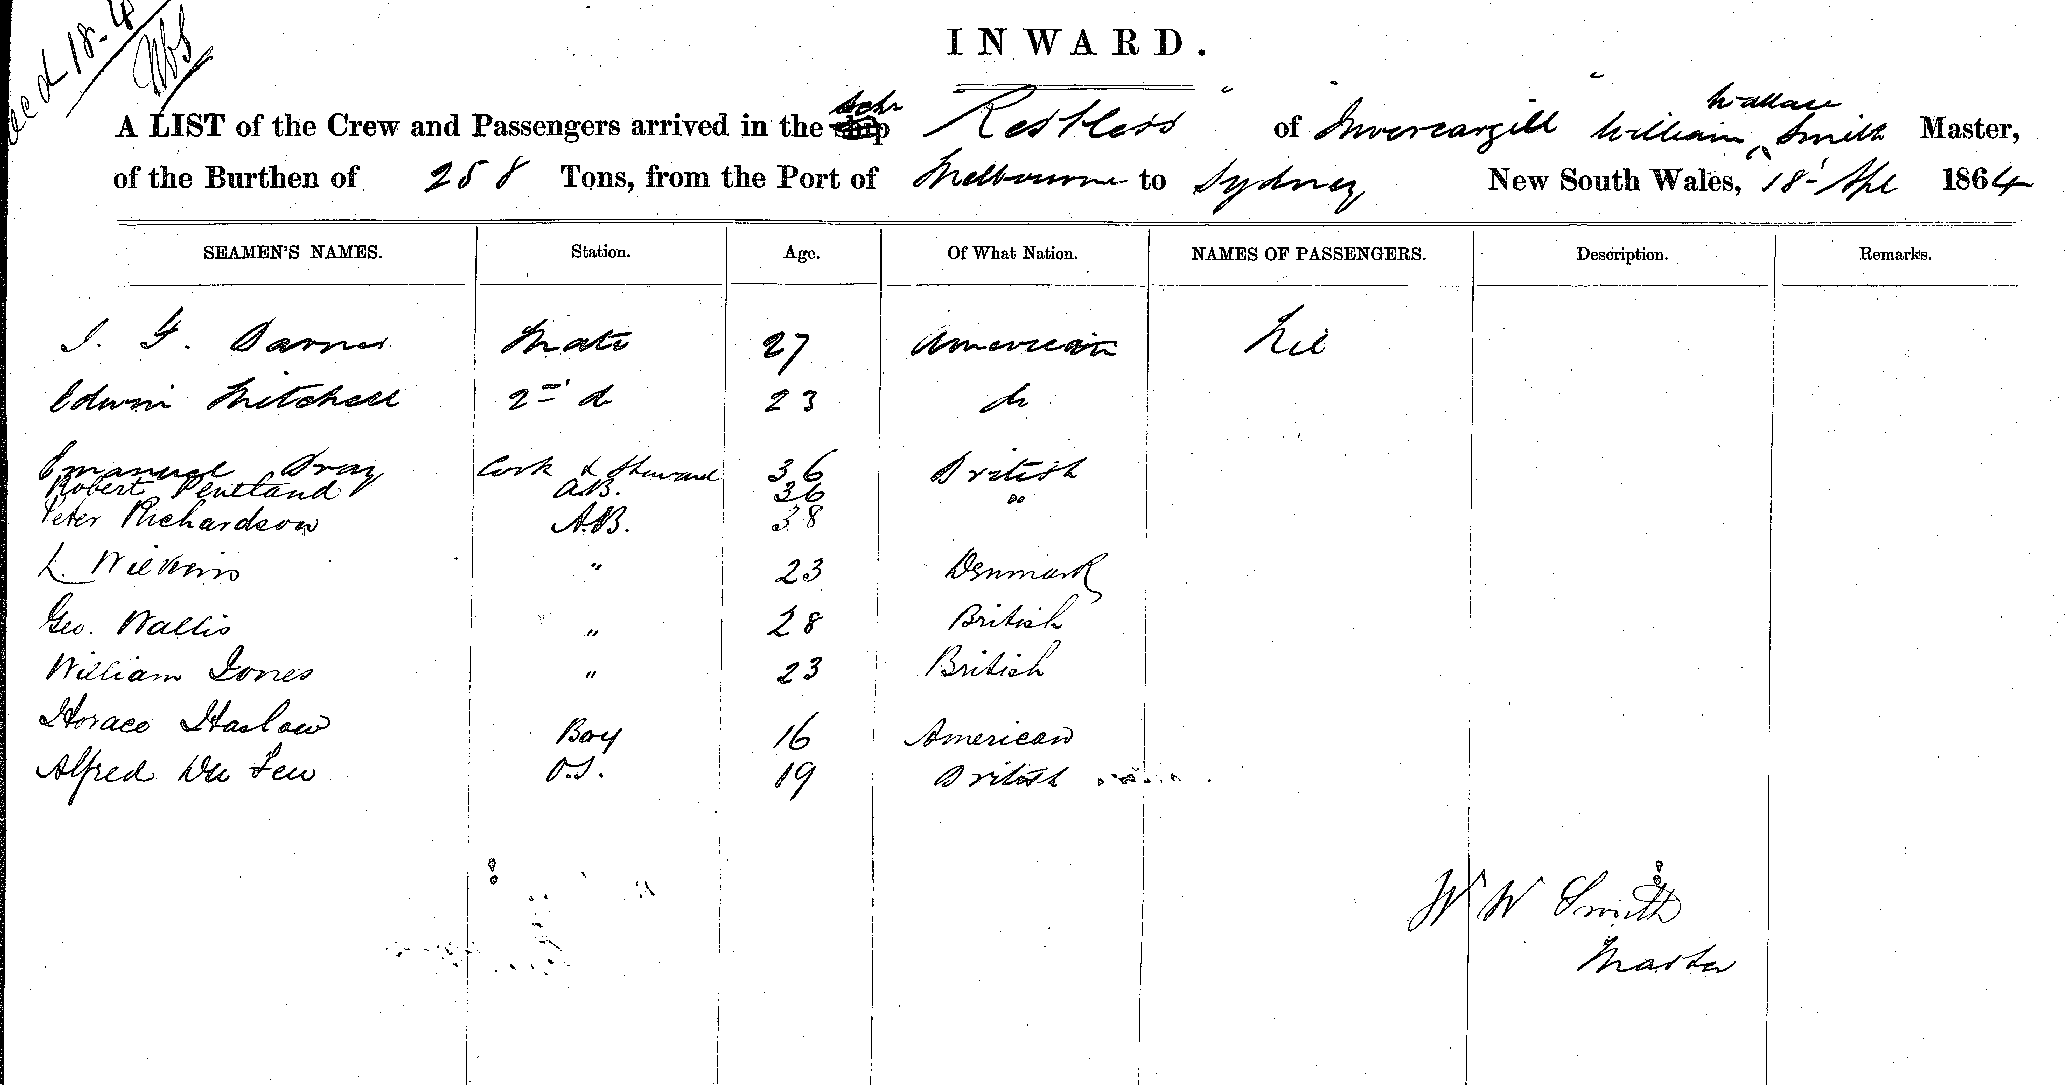 Recd 18-4
INWARD.
A LIST of the Crew and Passengers arrived in the Schr "Restless" of Invercargill William Wallace Smith Master,
of the Burthen of 258 Tons, from the Port of Melbourne to Sydney New South Wales, 18' Apl 1864
SEAMEN'S NAMES. Station. Age. Of What Nation. NAMES OF PASSENGERS. Description. Remarks.
Mate 27 American Nil
Edwin Mitchell 2nd do 23 do
Emanuel Cook & Steward 36 British
Robert Pentland A.B. 36 "
Peter Richardson A.B. 38
L. Wilkins " 23 Denmark
Geo. Wallis " 28 British
William Jones " 23 British
Horace Haslow Boy 16 American
Alfred O.S. 19 British
W W Smith
Master